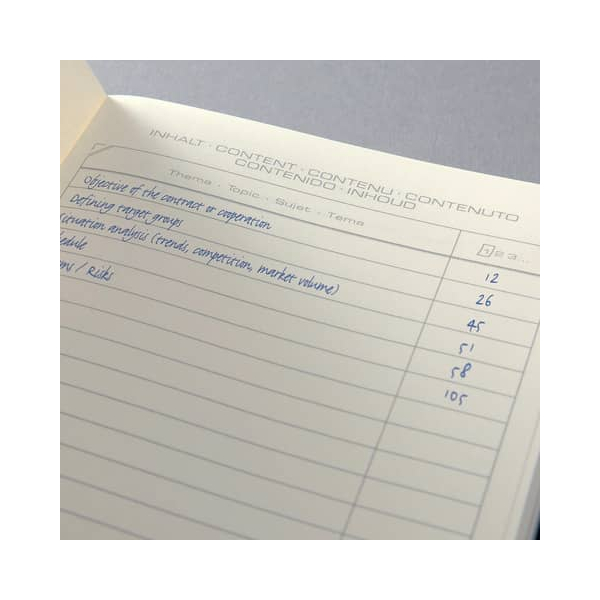 INHALT · CONTENT · CONTENU · CONTENUTO
CONTENIDO · INHOUD
Thema · Topic · Sujet · Tema 1 2 3...
Objective of the contract or cooperation 12
Defining target groups 26
situation analysis (trends, competition, market volume) 45
51
/ Risks 58
105